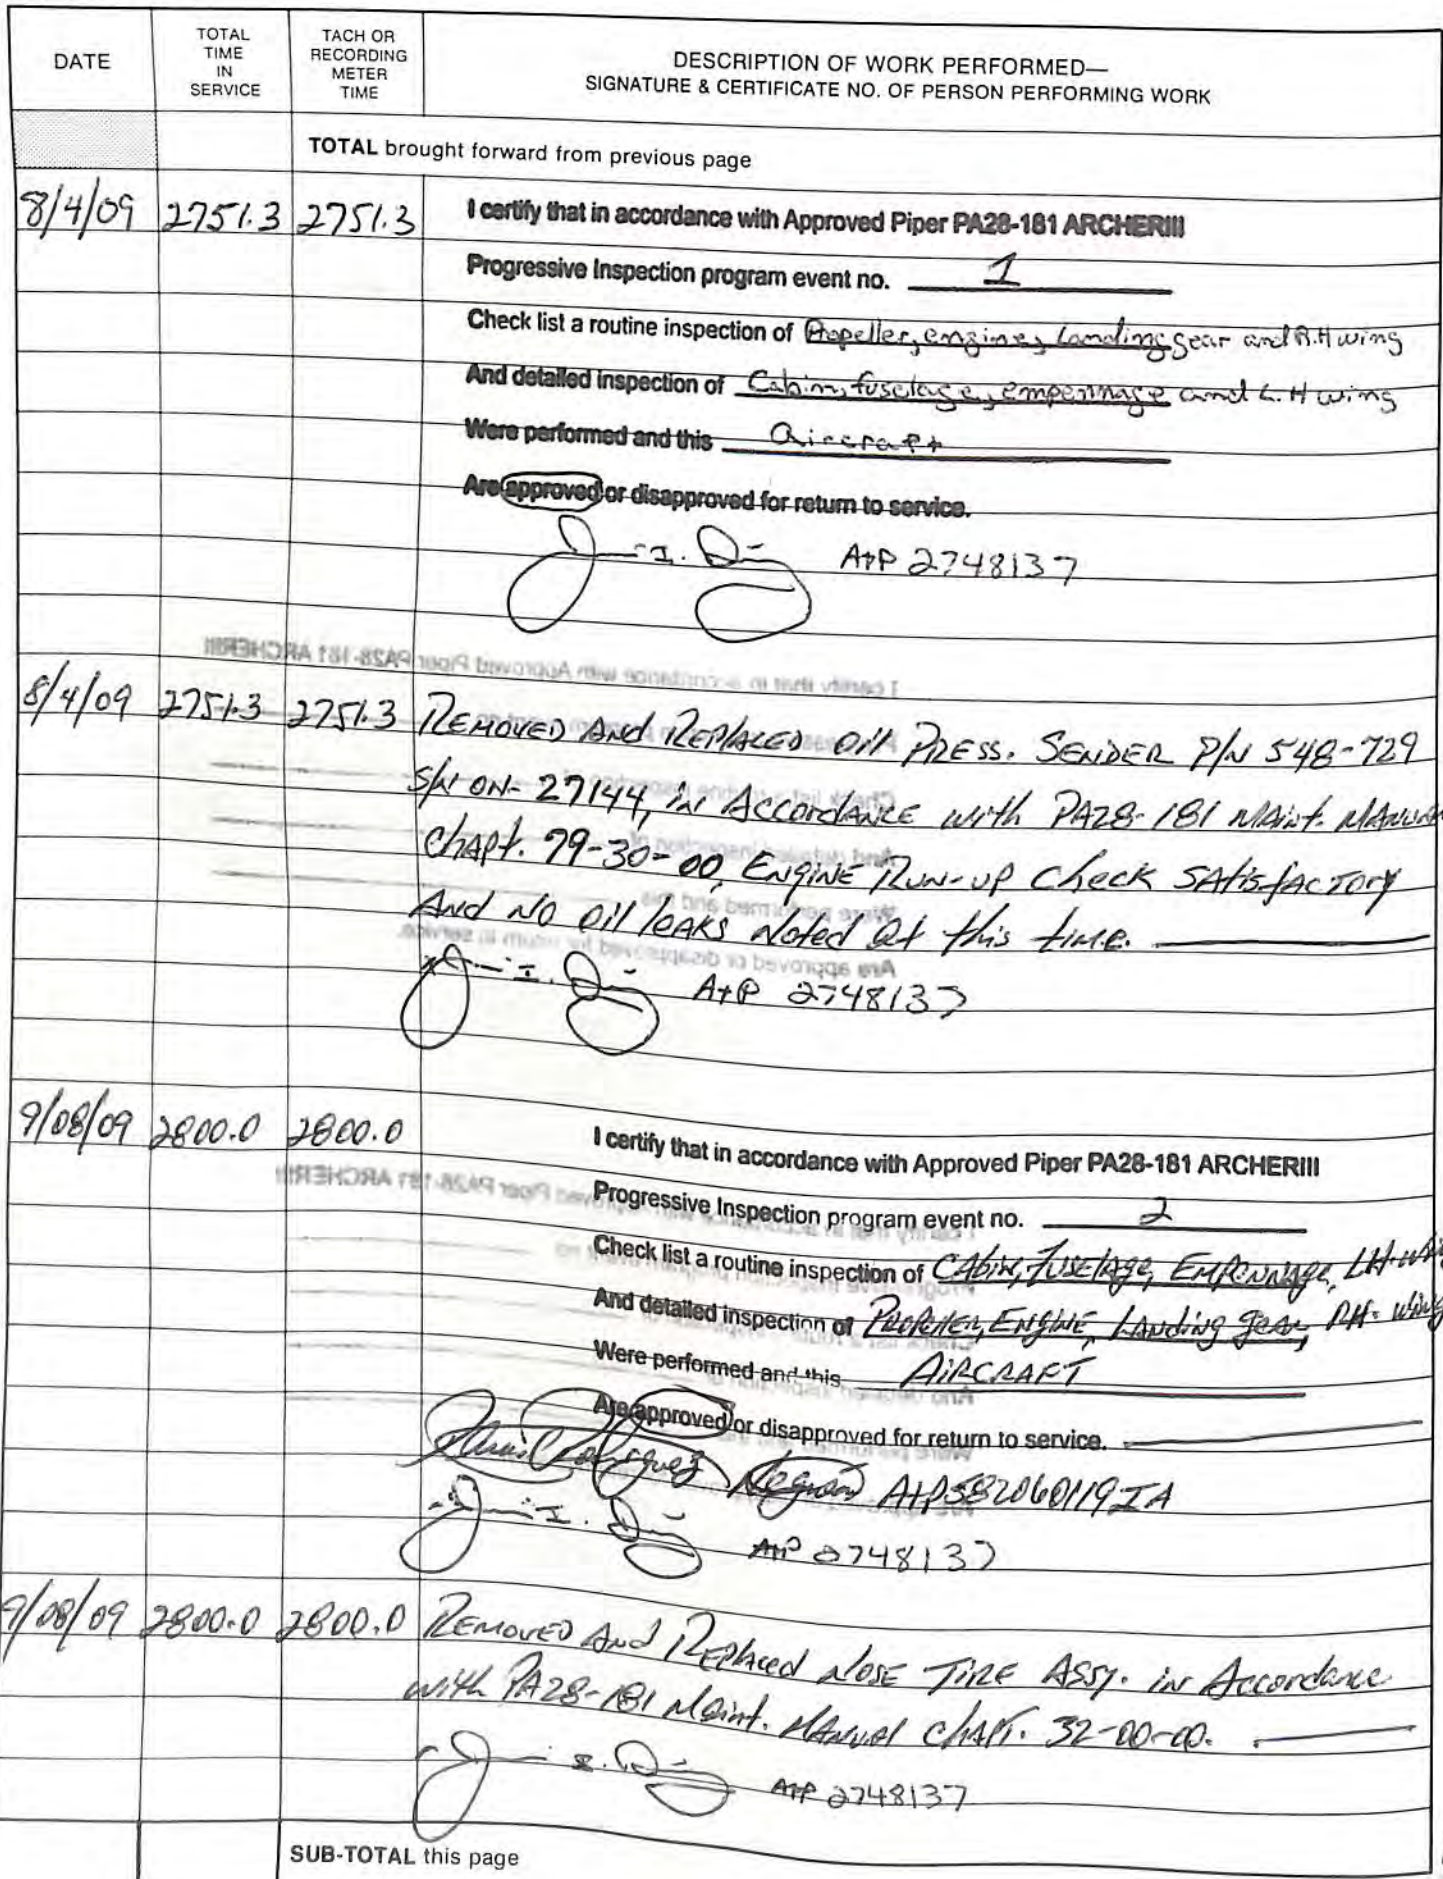 DATE
TOTAL TIME IN SERVICE
TACH OR RECORDING METER TIME
DESCRIPTION OF WORK PERFORMED—
SIGNATURE & CERTIFICATE NO. OF PERSON PERFORMING WORK
TOTAL brought forward from previous page
8/4/09 2751.3 2751.3 I certify that in accordance with Approved Piper PA28-181 ARCHERIII
Progressive Inspection program event no. 1
Check list a routine inspection of Propeller, engine, Landing gear and R.H wing
And detailed inspection of Cabin, fuselage, empennage and L.H wing
Were performed and this Aircraft
Are approved or disapproved for return to service.
A+P 2748137
8/4/09 2751.3 2751.3 REMOVED AND REPLACED OIL PRESS. SENDER P/N 548-729
S/N ON-27144, in Accordance with PA28-181 MAINT. MANUAL
CHAPT. 79-30-00, ENGINE RUN-UP CHECK SATISFACTORY
And NO OIL LEAKS Noted At this time.
A+P 2748137
9/08/09 2800.0 2800.0 I certify that in accordance with Approved Piper PA28-181 ARCHERIII
Progressive Inspection program event no. 2
Check list a routine inspection of CABIN, FUSELAGE, EMPENNAGE, LH-Wing
And detailed inspection of PROPELLER, ENGINE, LANDING gear, RH-Wing
Were performed and this AIRCRAFT
Are approved or disapproved for return to service.
A+P 582060119IA
A+P 2748137
9/08/09 2800.0 2800.0 REMOVED And REPLACED NOSE TIRE ASSY. in Accordance
with PA28-181 Maint. MANUAL CHAPT. 32-00-00.
A+P 2748137
SUB-TOTAL this page